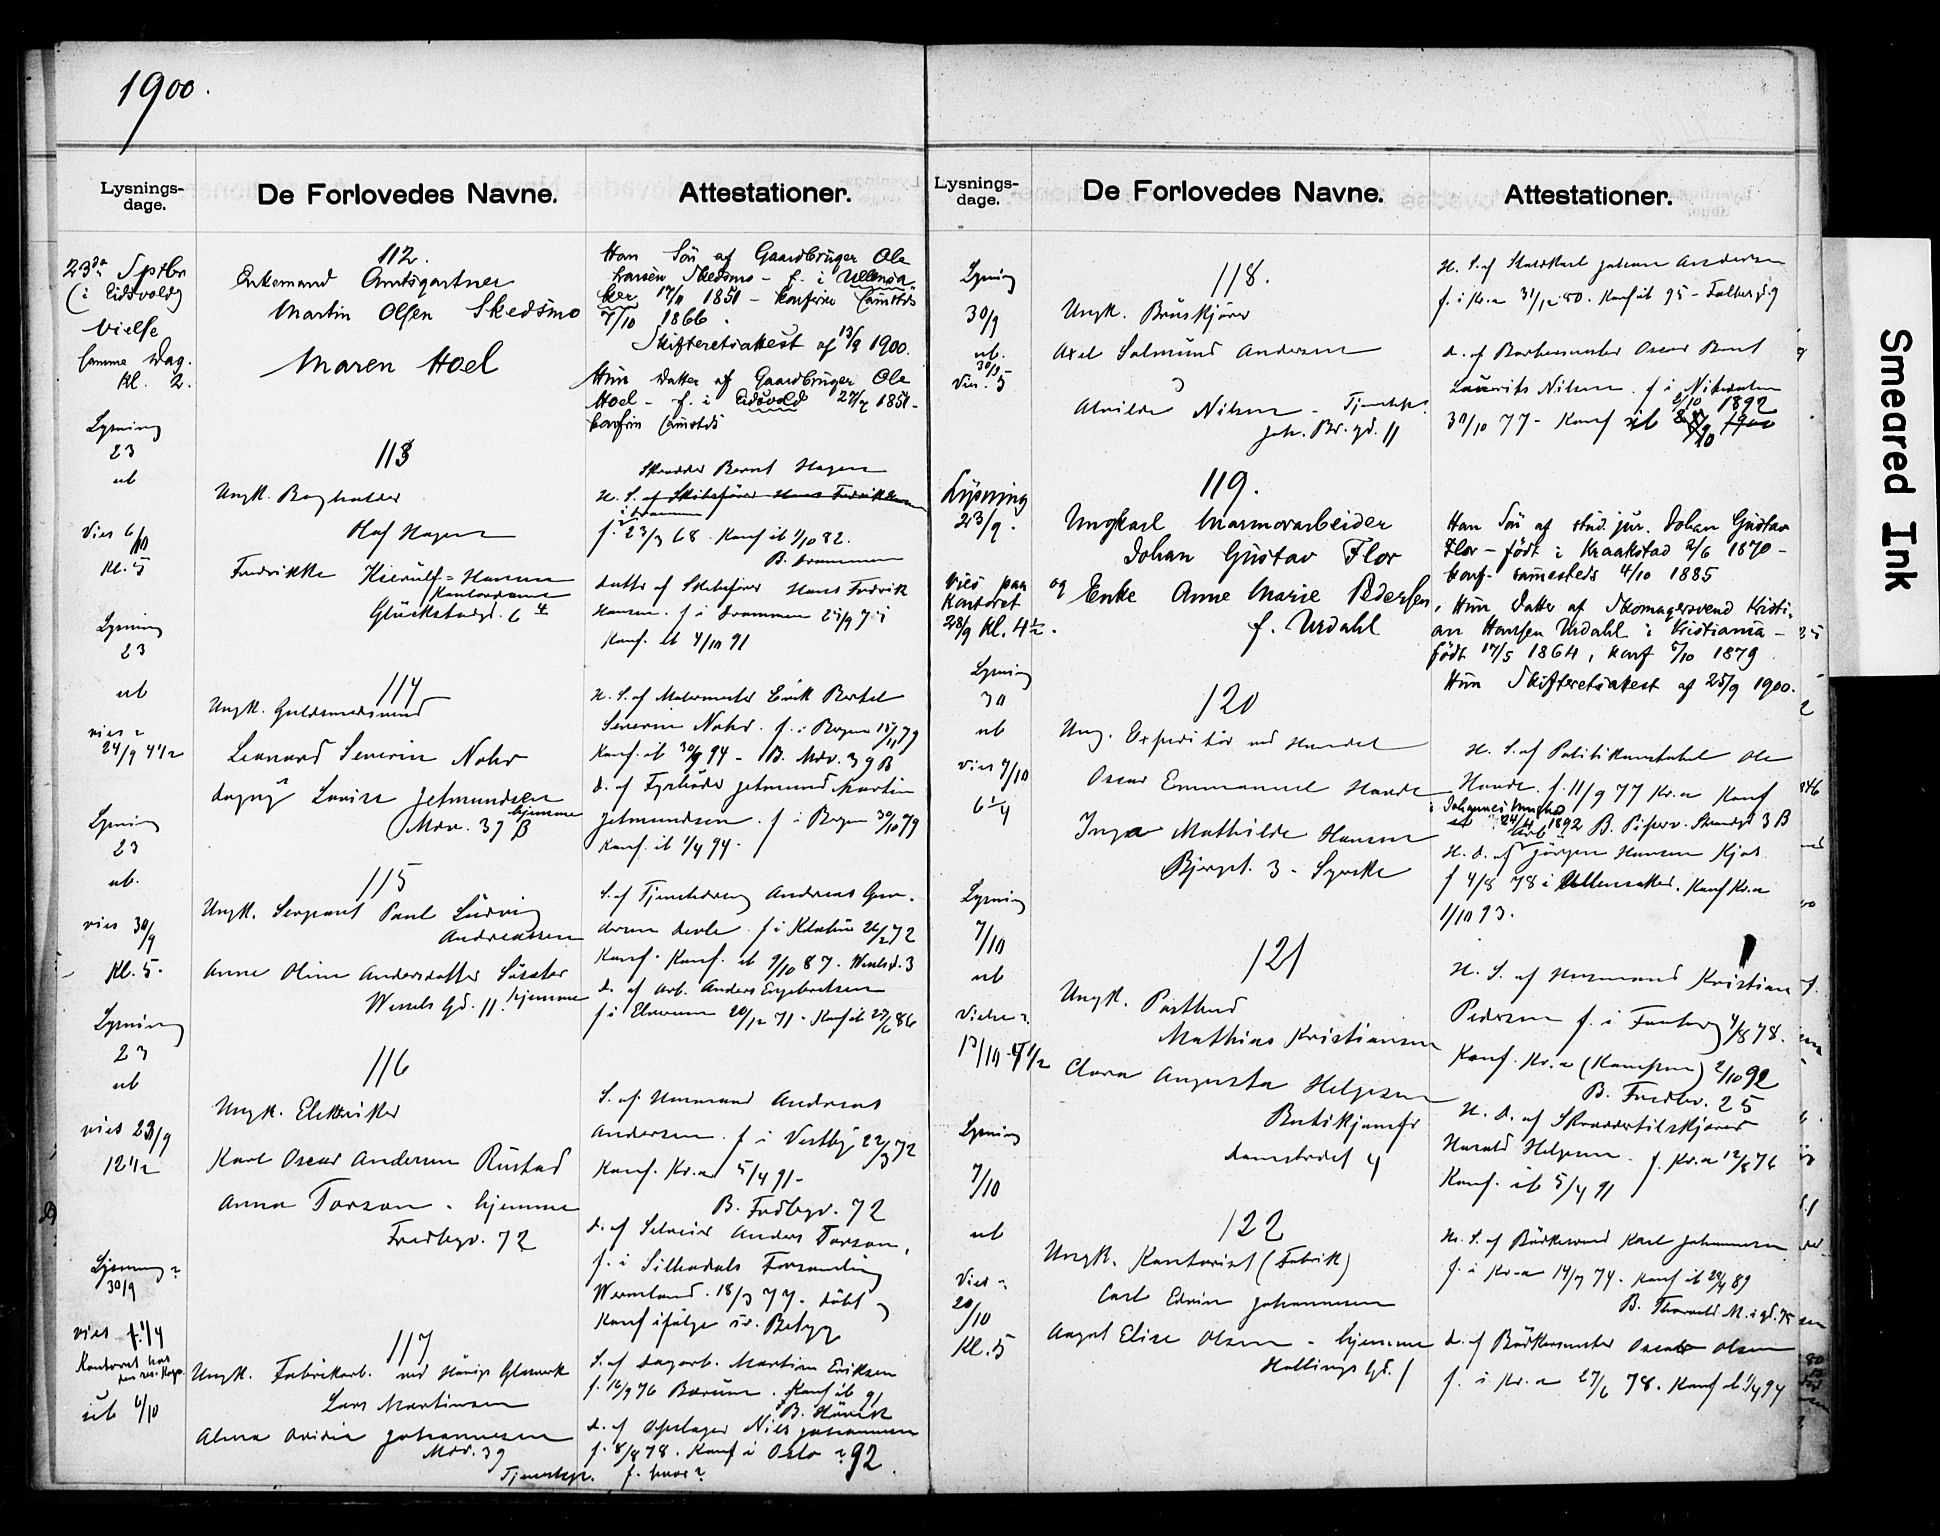 1900.
Lysnings-
dage.
De Forlovedes Navne.
Attestationer.
23de Sptbr
(i Eidsvold)
Vielse
samme Dag.
Kl. 2.
112.
Enkemand Amtsgartner
Martin Olsen Skedsmo
Maren Hoel
Han Søn af Gaardbruger Ole
Larsen Skedsmo - f. i Ullensa-
ker 1851 - konfirm samsteds
7/10 1866.
Skifteretsattest af 13/9 1900.
Hun Datter af Gaardbruger Ole
Hoel - f. i Eidsvold 1851 -
konfirm samsteds
Lysning
23
ub
Vies 6/10
Kl. 5
113
Ungk. Bogholder
Olaf Hagen
Fredrikke Kierulf = Hansen
Kontordame
Glückstadgd. 6
Skrædder Bernt Hagen
H. S. af Skibsfører Hans Fredrik Hansen
i Drammen
f. 23/3 68. Konf ib 1/10 82.
B. Drammen
Datter af Skibsfører Hans Fredrik
Hansen. f i Drammen
Konf. ib 4/10 91
Lysning
23
ub
vies
24/9 4 1/2
114
Ungk. Guldsmedsvend
Leonard Severin Nohr
Dagny Lovise Jetmundsen
hjemme
Mdv. 37 B
H. S. af Malermester Erik Bertel
Severin Nohr. f. i Bergen 15/11 79
Konf. ib 30/9 94 - B. Mdv. 39 B
D. af Fyrbøder Jetmund Martin
Jetmundsen. f i Bergen 30/10 79
Konf. ib 1/4 94.
Lysning
23
ub.
vies 30/9
Kl. 5.
115
Ungk. Sergeant Paul Ludvig
Andreassen
Anne Oline Andersdatter
Wessels gd. 11. hjemme
S. af Tjenestedreng Andreas Gun-
f i Kløbu 26/2 72
Konf. Konf. ib 9/10 87. Wesels. 3
D. af Arb. Anders Engebretsen
f i Elverum 20/12 71 - Konf ib 27/6 86
Lysning
23
ub
vies 23/9
12 1/2
116
Ungk. Elektriker
Karl Oscar Andersen Rustad
Anna Torson - hjemme
Fredbgv. 72
S. af Husmand Andreas
Andersen. f i Vestby 22/3 72
Konf. Kr.a 5/4 91 -
B. Fredbgv. 72
D. af Anders Torson,
f. i Silbodals Forsamling
Wermland. 18/3 77. døbt og
Konf ifølge sv. Betyg
Lysning
30/9
vies
ub 6/10
117
Ungk. Fabrikarb. ved Høviks Glasverk
Lars Martinsen
Alma Jahannesen
Mdv. 39
Tjenestepi.
S. af Dagarb. Martin Eriksen
f. 16/9 76 Bærum. Konf ib 91
B. Høvik
D. af Opslager Nils Johannesen
f. 8/8 78. Konf i Oslo ? 92.
f. hvor?
Lysnings-
dage.
De Forlovedes Navne.
Attestationer.
Lysning
30/9
ub.
30/9
Vies. 5
118.
Ungk. Bruskjører
Axel Salmund Andersen
Alvilde Nilsen - Tjenestepi.
Joh. Br. gd. 11
H. S. af Staldkarl Johan Andersen
f. i Kr.a 31/12 80. Konf ib 95 - Falbergs. 9
D. af Barbermester Oscar Bernt
Lauritz Nilsen. f i Nitedalen
2/10 1892
31/10 77 - Konf ib 1900
Lysning
23/9.
Vies paa
Kontoret
28/9 Kl. 4 1/2.
119.
Ungkarl Marmorarbeider
Johan Gustav Flor
og Enke Anne Marie Pedersen
f. Urdahl
Han Søn af stud. jur. Johan Gustav
Flor - født i Kraakstad 2/6 1870 -
konf. samesteds 4/10 1885
Hun Datter af Skomagersvend Kristi-
an Hansen Urdahl i Kristiania -
født 17/5 1864, konf 5/10 1879
Hun Skifteretsattest af 25/9 1900.
Lysning
30
ub
vies 7/10
120
Ung. Expeditør ved Handel
Oscar Emmanuel Havde
Inga Mathilde Hansen
Bjergst. 3 - Syerske
H. S. af Politikonstabel Ole
Havde. f. 11/9 77 Kr.a Konf
i Johannes Menighed
ib 24/4 1892 B. Pipervikens Strandgd 3 B
Arb.
H. D. af Jörgen Hansen
f 4/8 78 i Ullensaker. Konf Kr.a
1/10 93.
Lysning
7/10
ub
Vielse
13/10
121
Ungk. Postbud
Mathias Kristiansen
Clara Augusta Helgesen
Butikjomfr
Damstrædet 4
H. S. af Husmand Kristian
Pedersen f. i Faaberg 4/8 78.
Konf. Kr.a (Kampen) 2/10 92
B. Fredbv. 25
H. D. af Skræddertilskjærer
Harald Helgesen - f. Kr.a 12/8 76
Konf. ib 5/4 91
Lysning
7/10
ub
Vies
20/10
Kl. 5
122
Ungk. Kontorist (Fabrik)
Carl Edvin Johannesen
Aagot Elise Olsen - hjemme
Hallings gd. 1
H. S. af Bødkersvend Karl Johannesen
f. i Kr.a 14/7 74. Konf ib 89
B. Thorvald M. s gd. 75
D. af Bødkermester Oscar Olsen
f. i Kr.a 27/6 78. Konf ib 94
Smeared Ink